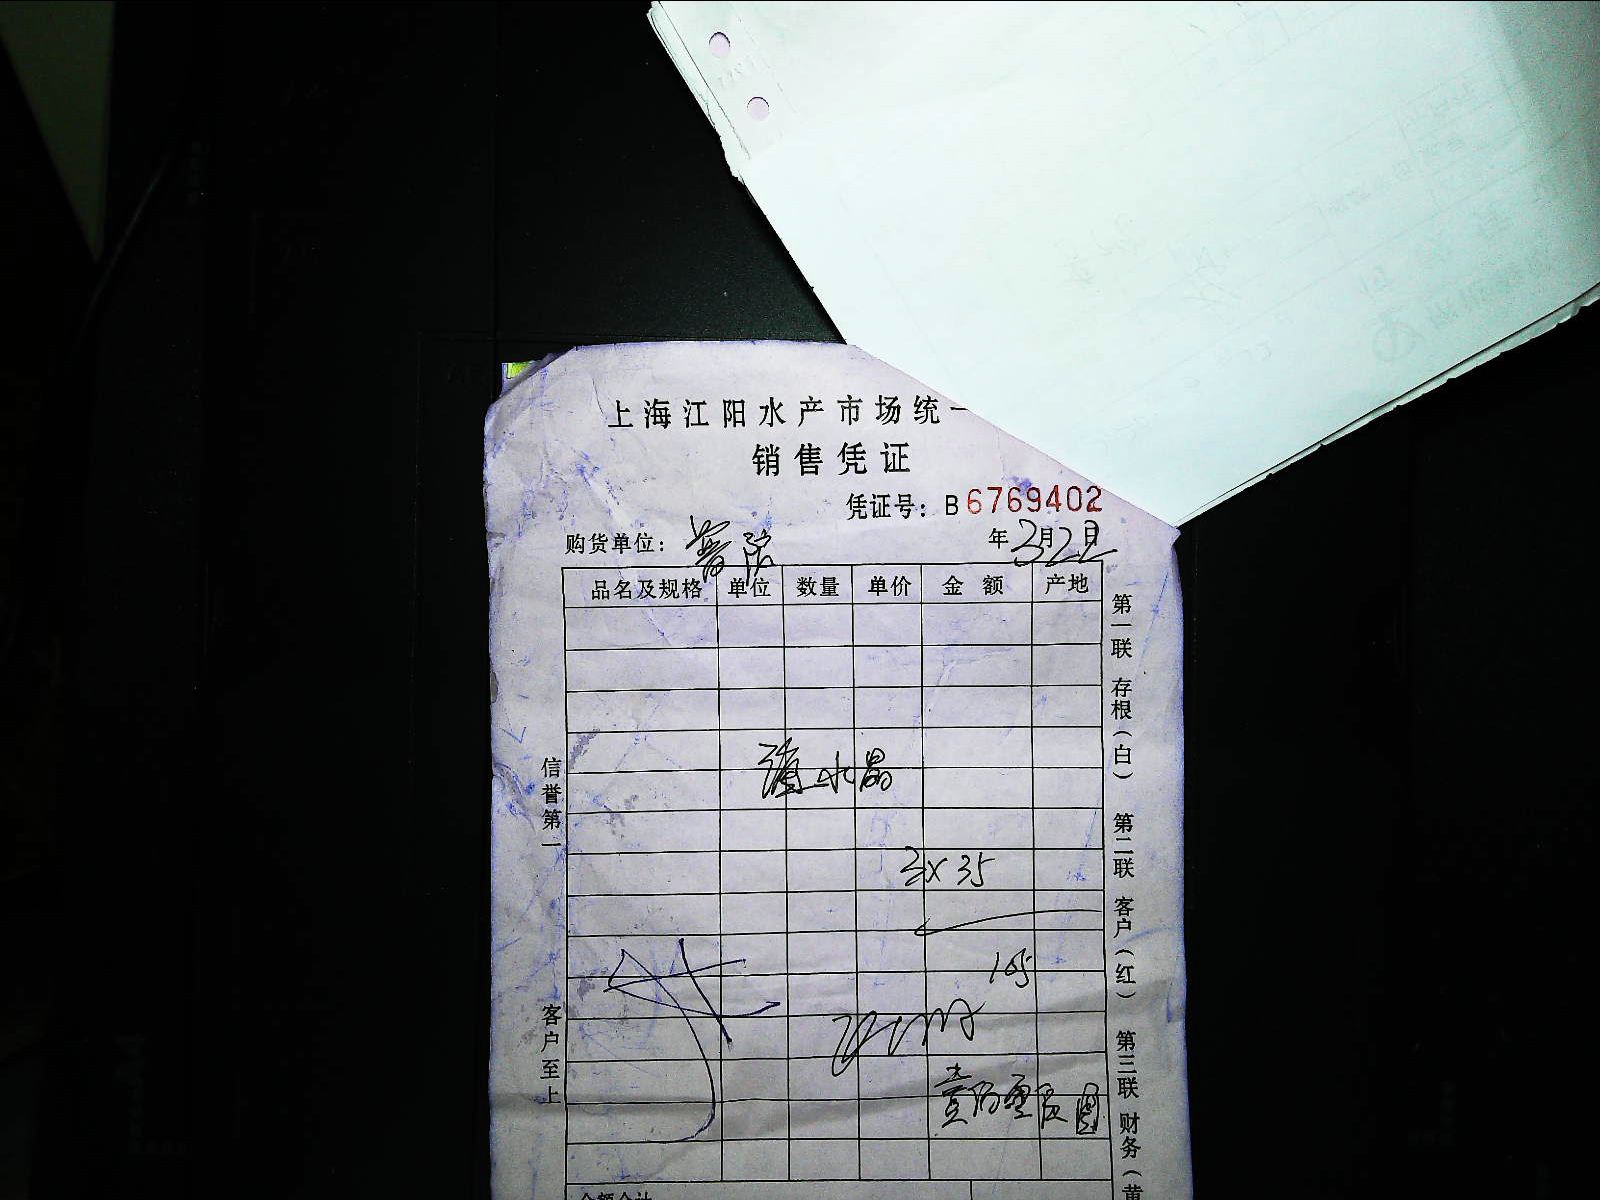 上海江阳水产市场统一
销售凭证
凭证号：B 6769402
购货单位：普陀 年3月2日
品名及规格 单位 数量 单价 金额 产地
水晶
3X35
105
壹佰零伍圆
信誉第一 客户至上
第一联 存根（白） 第二联 客户（红） 第三联 财务（黄
金额合计